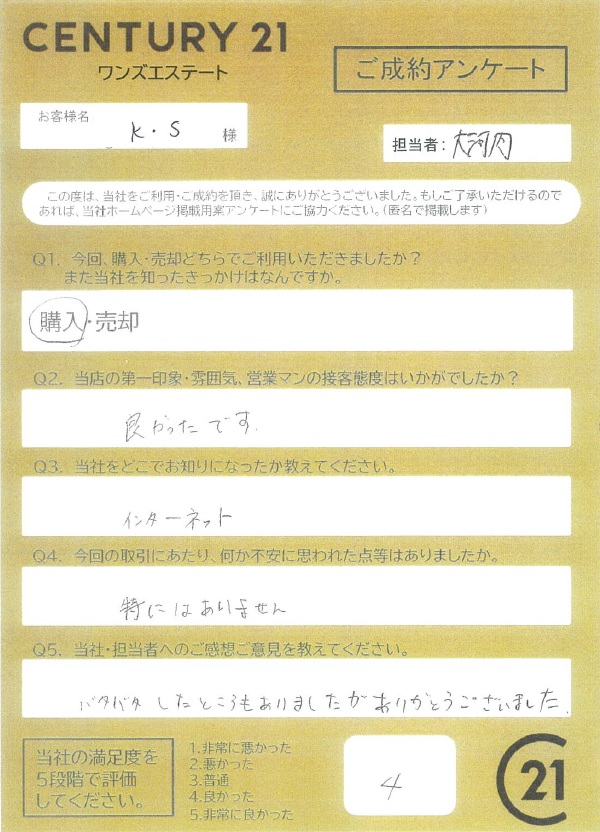 CENTURY 21
ワンズエステート
ご成約アンケート
お客様名
K・S 様
担当者: 大河内
この度は、当社をご利用・ご成約を頂き、誠にありがとうございました。もしご了承いただけるので
あれば、当社ホームページ掲載用案アンケートにご協力ください。(匿名で掲載します)
Q1. 今回、購入・売却どちらでご利用いただきましたか?
また当社を知ったきっかけはなんですか。
購入・売却
Q2. 当店の第一印象・雰囲気、営業マンの接客態度はいかがでしたか?
良かったです.
Q3. 当社をどこでお知りになったか教えてください。
インターネット
Q4. 今回の取引にあたり、何か不安に思われた点等はありましたか。
特にはありません
Q5. 当社・担当者へのご感想ご意見を教えてください。
バタバタしたところもありましたがありがとうございました.
当社の満足度を
5段階で評価
してください。
1.非常に悪かった
2.悪かった
3.普通
4.良かった
5.非常に良かった
4
21